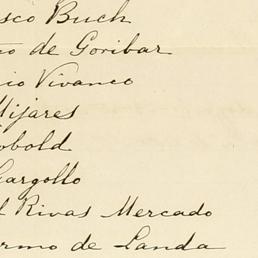 sco Buch
o de Goribar
io Vivanco
Mijares
obold
Gargollo
l Rivas Mercado
ermo de Landa